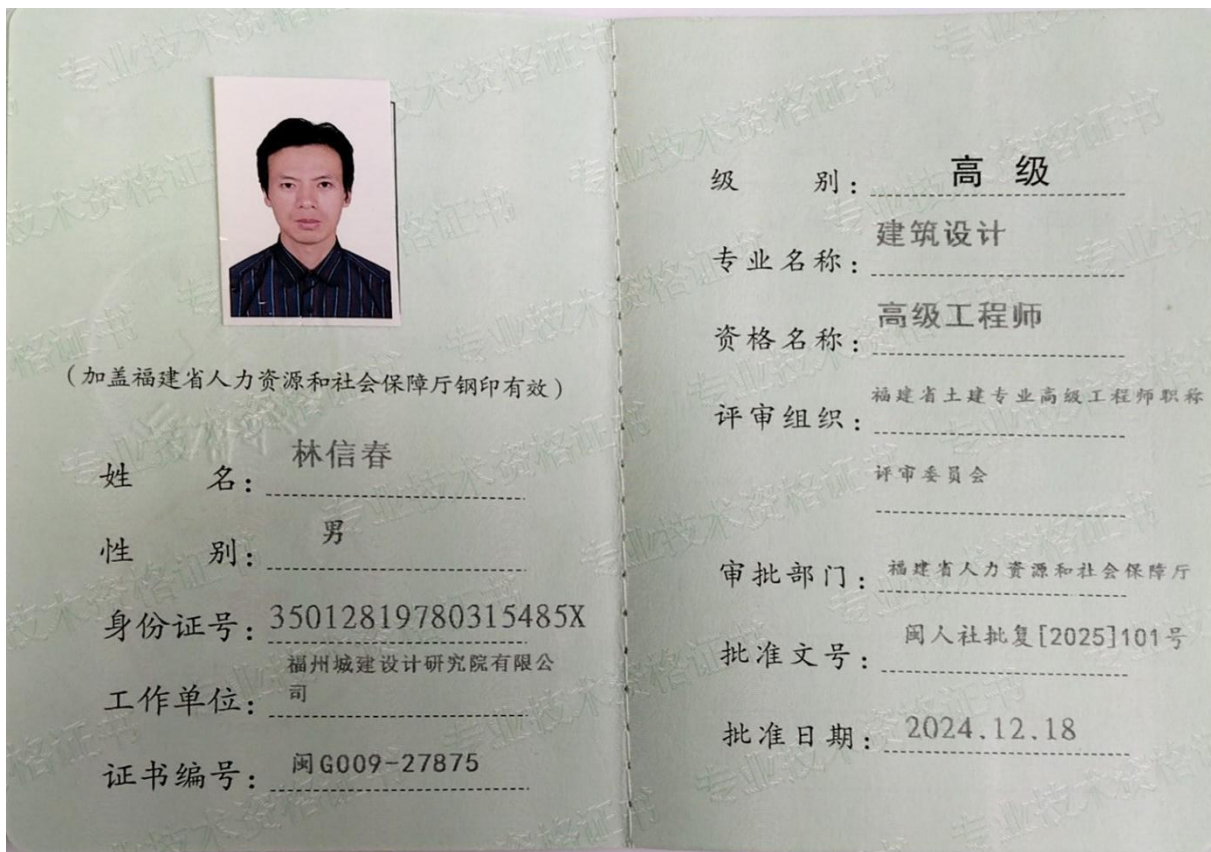 (加盖福建省人力资源和社会保障厅钢印有效)
姓 名: 林信春
性 别: 男
身份证号: 35012819780315485X
工作单位: 福州城建设计研究院有限公
司
证书编号: 闽G009-27875
级 别: 高 级
专业名称: 建筑设计
资格名称: 高级工程师
评审组织: 福建省土建专业高级工程师职称
评审委员会
审批部门: 福建省人力资源和社会保障厅
批准文号: 闽人社批复[2025]101号
批准日期: 2024.12.18
专业技术资格证书